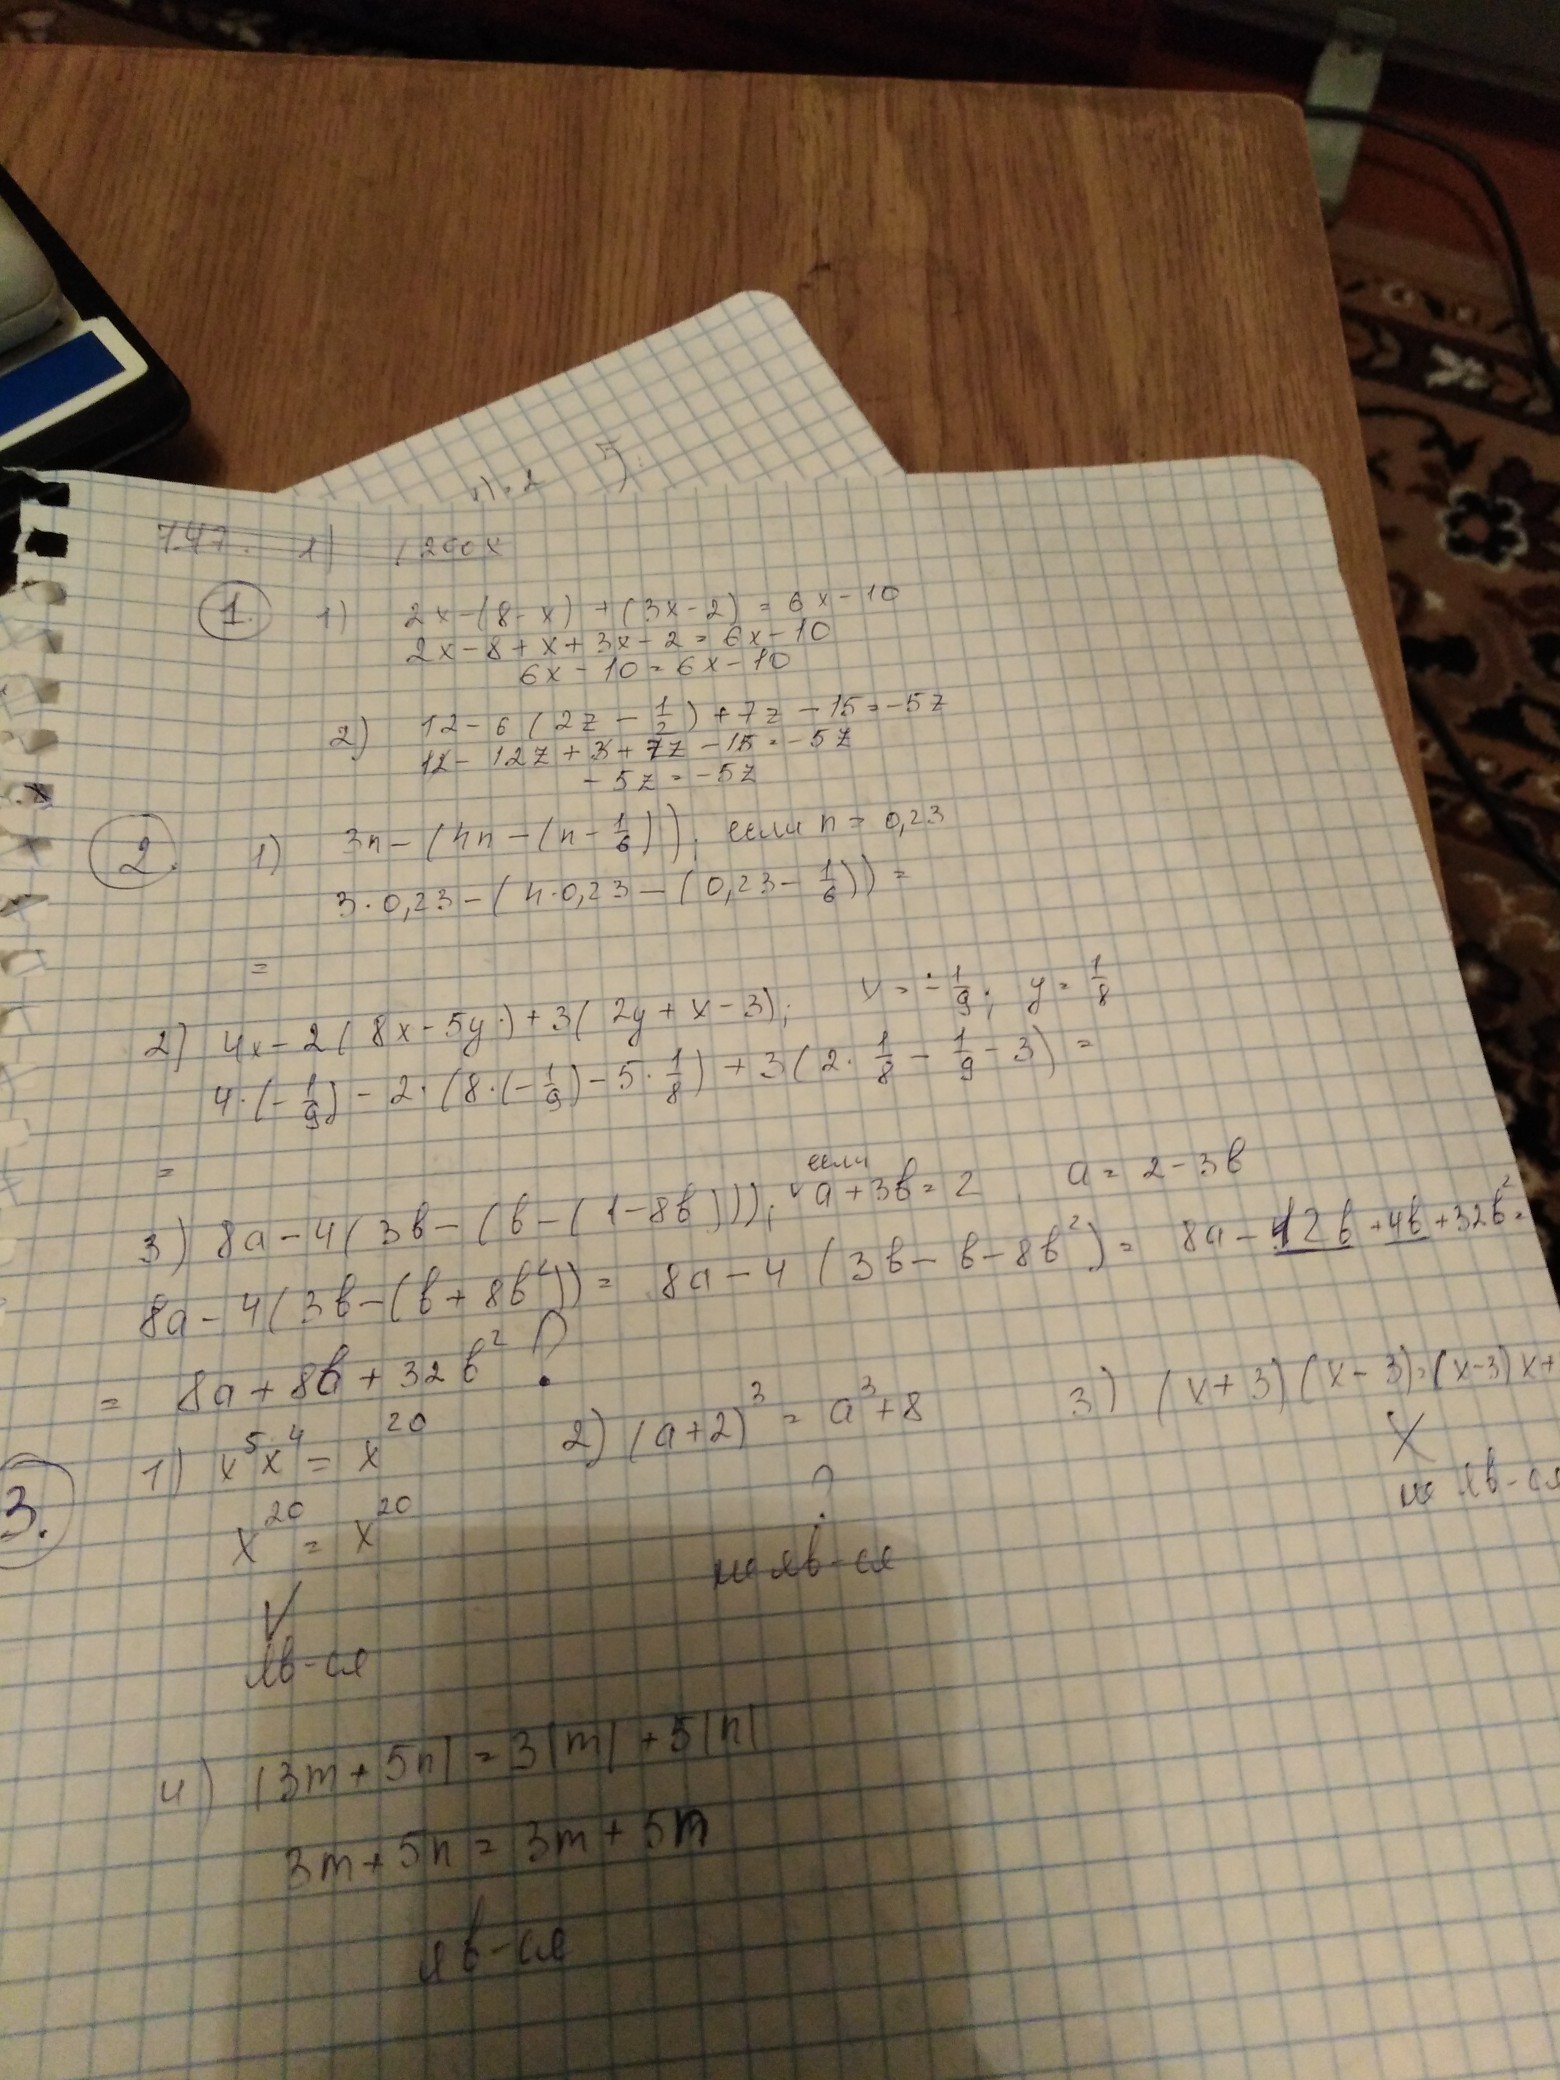 747. 1) 1200x
1. 1) 2x-(8-x)+(3x-2)=6x-10
2x-8+x+3x-2=6x-10
6x-10=6x-10
2) 12-6(2z-1/2)+7z-15=-5z
12-12z+3+7z-15=-5z
-5z=-5z
2. 1) 3n-(4n-(n-1/6)); если n=0,23
3·0,23-(4·0,23-(0,23-1/6))=
=
2) 4x-2(8x-5y)+3(2y+x-3); x=-1/9; y=1/8
4·(-1/9)-2·(8·(-1/9)-5·1/8)+3(2·1/8-1/9-3)=
=
3) 8a-4(3b-(b-(1-8b))); если a+3b=2, a=2-3b
8a-4(3b-(b+8b²))= 8a-4(3b-b-8b²)= 8a-12b+4b+32b²=
= 8a+8b+32b² ?
3. 1) x⁵x⁴=x²⁰ 2) (a+2)³=a³+8 3) (x+3)(x-3)=(x-3)x+
x²⁰=x²⁰ ? X
V не яв-ся не яв-ся
яв-ся
4) |3m+5n|=3|m|+5|n|
3m+5n=3m+5n
яв-ся